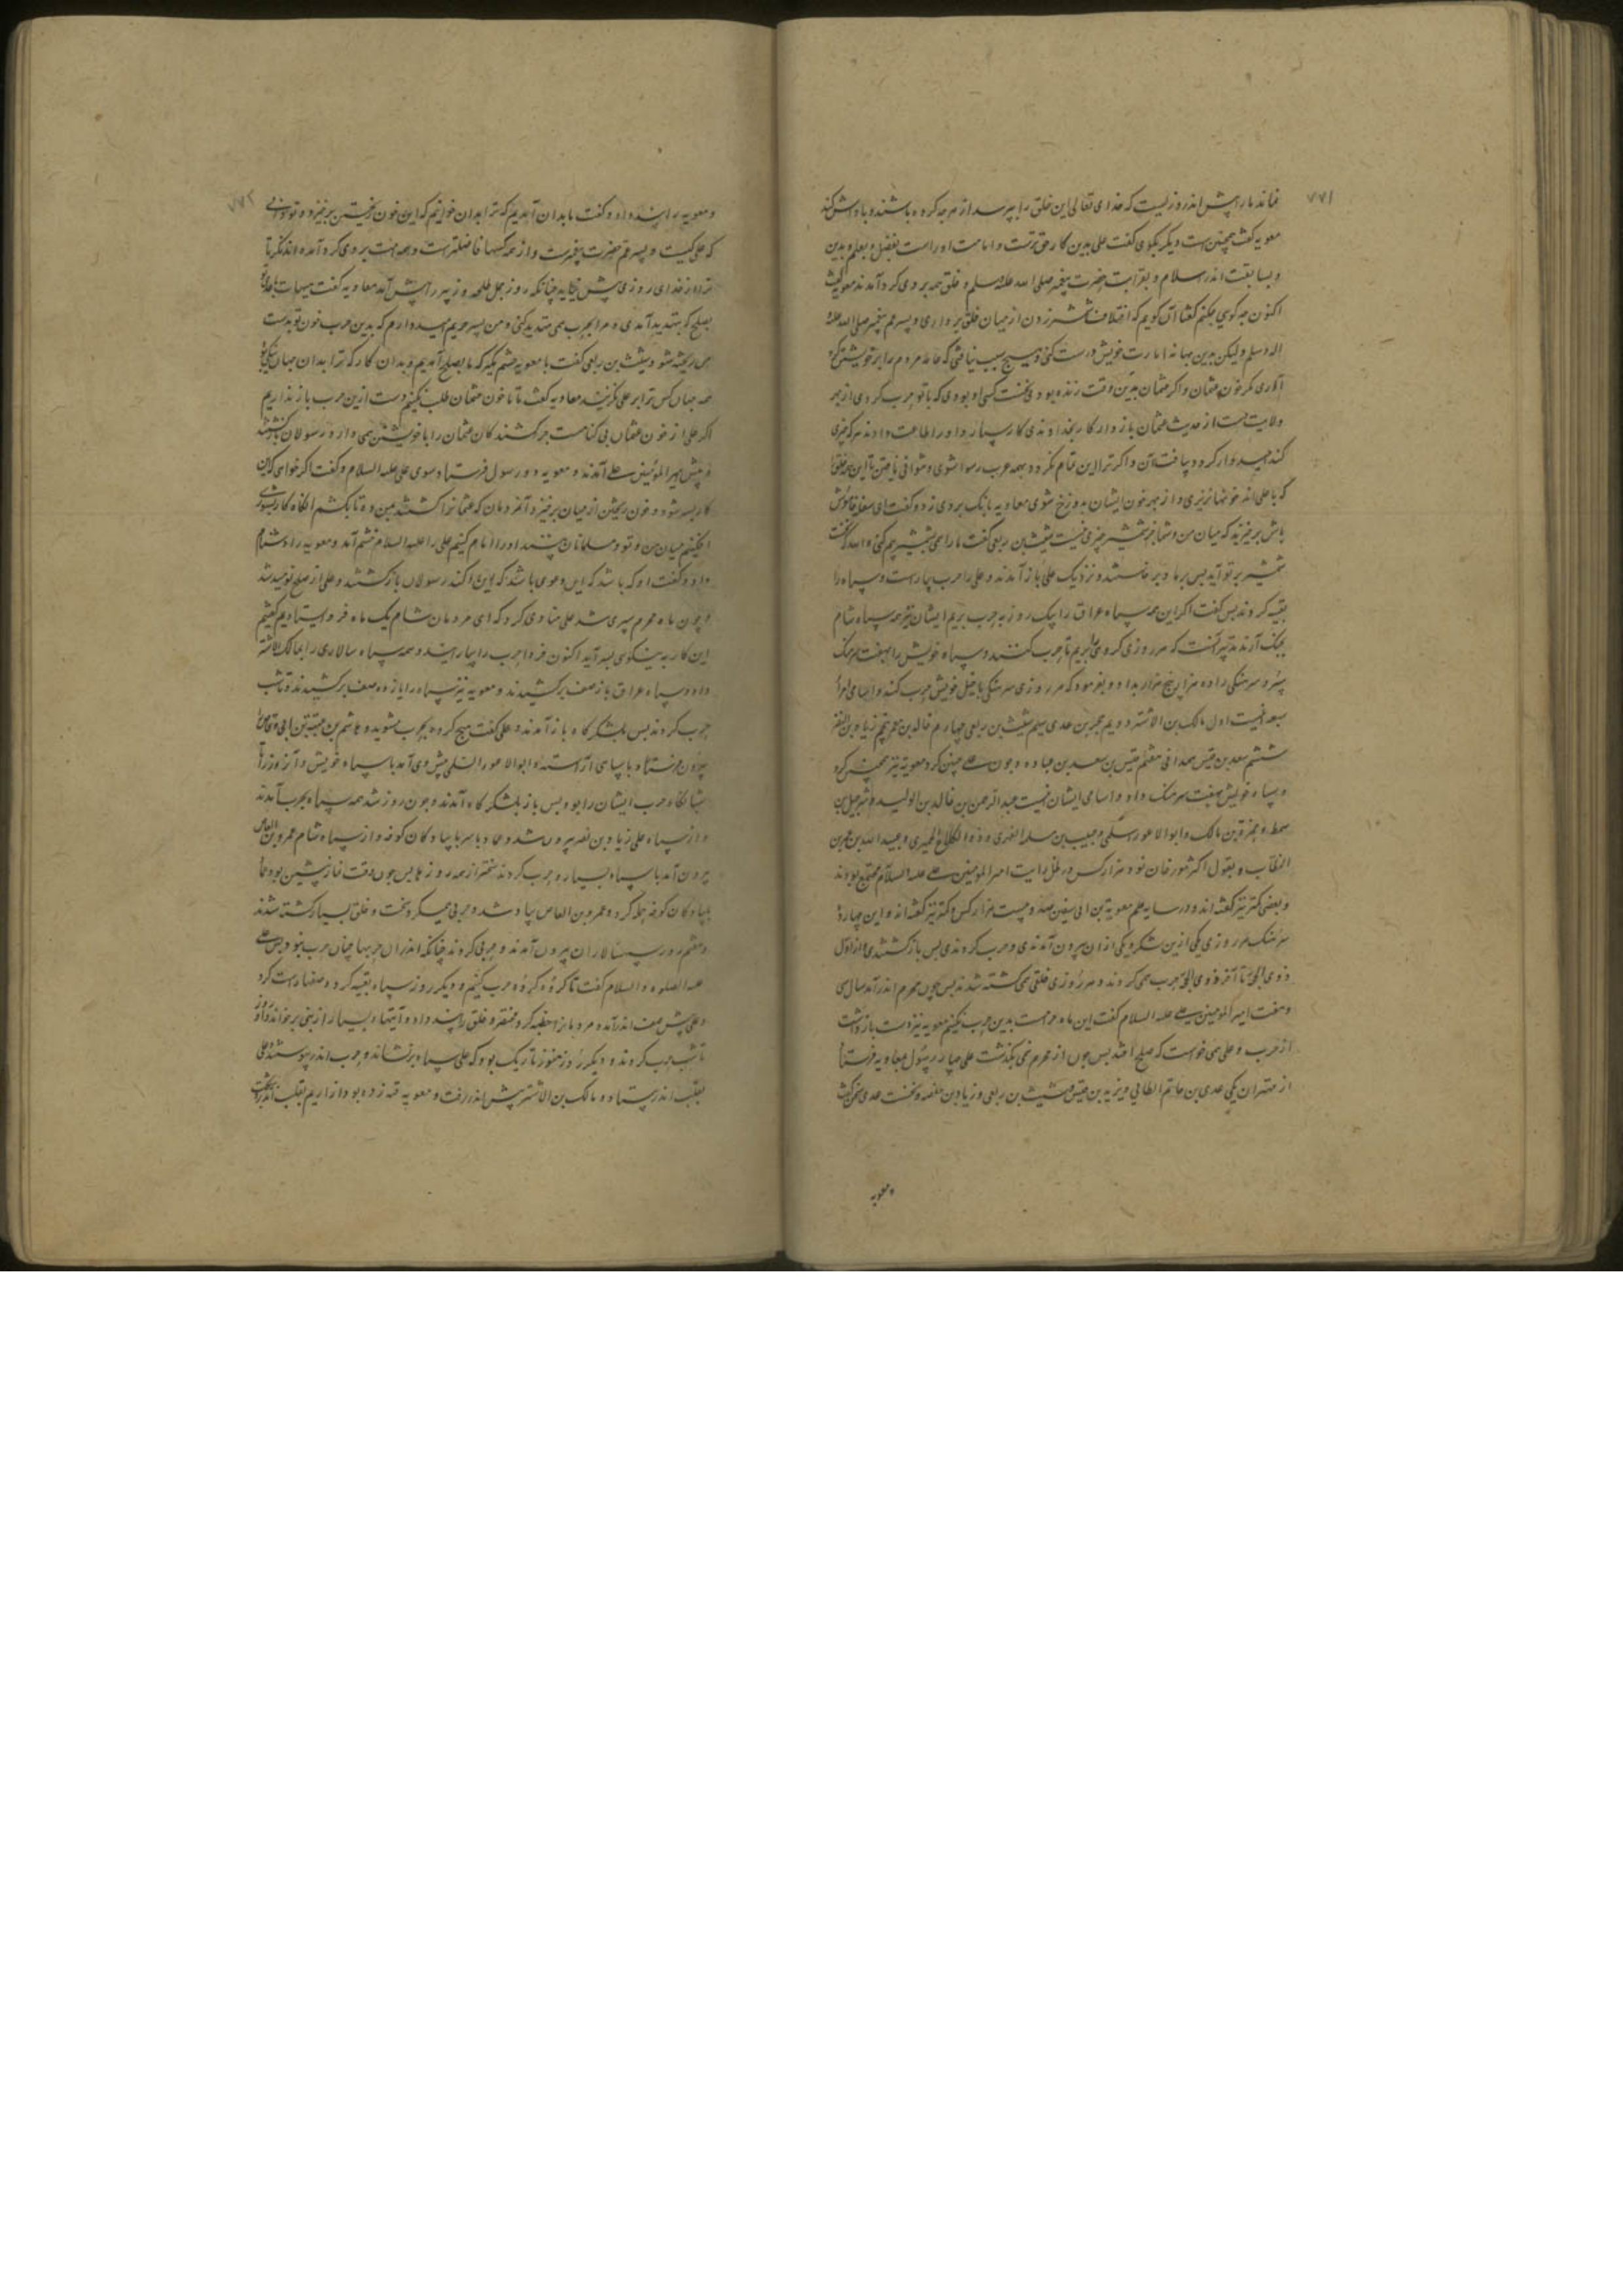 ۷۷۱
نماند ما را پیش اندر روزیست که خدای تعالی این خلق را بپرسد از هرچه کرده باشند و پاداش کند
معویه گفت همچنین است دیگر بکوی گفت علی بدین کار حق ترست و امامت او راست بفضل و بعلم و بدین
و بسابقت اندر اسلام و بقرابت حضرت پیغمبر صلی الله علیه وسلم و خلق همه بر وی کرد آمدند معویه گفت
اکنون چه کویی چکنم گفتا آن کویم که اختلاف شمشیر زدن از میان خلق برداری و پسر عم پیغمبر صلی الله علیه
واله وسلم ولیکن بدین بهانه امارت خویش درست کنی و هیچ سبب نیافتی که عامه مردم را بر خویشتن کرد
آوری مکر خون عثمان و اکر عثمان بدین وقت زنده بودی نخست کسی او بودی که با تو حرب کردی از بهر
ولایت دست از حدیث عثمان باز دار کار بخداوندی کار سپار و او را طاعت دار
کند امیدوار کردد بیافتن آن و اکر ترا این تمام نکردد بهمه عرب رسوا شوی و نتوانی یافتن تا این همه خلق
که با علی اند خونها نریزی و از بهر خون ایشان بدوزخ شوی معاویه بانک بر وی زد و گفت ای سفله خاموش
باش برخیزید که میان من و شما جز شمشیر چیزی نیست شبث بن ربعی گفت ما را همی بشمشیر بیم کنی والله که نخست
شمشیر بر تو آید پس برخاستند و نزدیک علی باز آمدند و علی را حرب بیاراست و سپاه را
تعبیه کردند پس گفت اکر این همه سپاه عراق را یک روز به حرب بریم ایشان نیز همه سپاه شام
بجنک آرند تدبیر آنست که هر روزی کروهی بریم تا حرب کنند و سپاه خویش را بهفت سرهنک
سپرد سرهنکی را ده هزار پنج هزار بداد و بفرمود که هر روزی سرهنکی با خیل خویش حرب کند و اسامی امرا
سبعه اینست اول مالک بن الاشتر دویم حجر بن عدی سیم شبث بن ربعی چهارم خالد بن معمر پنجم زیاد بن النضر
ششم سعد بن قیس همدانی هفتم قیس بن سعد بن عباده و چون علی چنین کرد معویه نیز همچنین کرد
و سپاه خویش بهفت سرهنک داد و اسامی ایشان اینست عبد الرحمن بن خالد بن الولید و شرحبیل بن
سمط و حمزة بن مالک و ابو الاعور سلمی و حبیب بن مسلمه الفهری و ذو الکلاع الحمیری و عبید الله بن عمر بن
الخطاب و بقول اکثر مورخان نود هزار کس در ظل رایت امیر المومنین علی علیه السلام مجتمع بودند
و بعضی کمتر نیز گفته اند و در سایه علم معویة بن ابی سفین صد و بیست هزار کس و کمتر نیز گفته اند و این چهارده
سرهنک هر روزی یکی ازین لشکر و یکی از ان بیرون آمدندی و حرب کردندی پس باز کشتندی از اول
ذوی الحجه تا آخر ذوی الحجه حرب همی کردند و هر روزی خلقی همی کشته شدند پس چون محرم اندر آمد سال سی
و هفت امیر المومنین علی علیه السلام گفت این ماه حرمت بدین حرب نکنیم معویه نیز دست باز داشت
از حرب و علی می خواست که صلح افتد پس چون از محرم نمی بکذشت علی چهار رسول بمعاویه فرستاد
از مهتران یکی عدی بن حاتم الطایی و یزید بن قیس و شبث بن ربعی و زیاد بن حفصه و نخست عدی سخن گفت
و معویه
۷۷۲
و معویه را پند داد و گفت ما بدان آمدیم که ترا بدان خوانیم که این خون ریختن برخیزد و تو دانی
که علی کیست و پسر عم حضرت پیغمبرست و از همه کسها فاضلترست و همه امت بر وی کرد آمده اند نکر تا
ترا از خدای روزی پیش نیاید چنانکه روز جمل طلحه و زبیر را پیش آمد معاویه گفت هیهات یا عدی تو
بصلح که بتهدید آمدی و مرا بحرب همی تهدید کنی و من پسر حربم امیدوارم که بدین حرب خون تو بدست
من ریخته شود و شبث بن ربعی گفت یا معویه خشم مکیر که ما بصلح آمدیم و بدان کار که ترا بدان جهان نیکی بود
همه جهان کس ترا بر علی نکزیند معاویه گفت تا ما خون عثمان طلب نکنیم دست ازین حرب باز نداریم
اکر علی از خون عثمان بی کناهست چرا کشندکان عثمان را با خویشتن همی دارد رسولان بازکشتند
و پیش امیر المؤمنین علی آمدند و معویه دو رسول فرستاد سوی علی علیه السلام و گفت اکر خواهی که این
کار بسر شود و خون ریختن از میان برخیزد آن مردمان که عثمانرا کشتند بمن ده تا بکشم انکاه کار بشوری
افکنیم میان من و تو و مسلمانان بپسندند او را امام کنیم علی را علیه السلام خشم آمد و معویه را دشنام
داد و گفت او که باشد که این دعوی باشد که این کند رسولان بازکشتند و علی از صلح نومید شد
و چون ماه محرم سپری شد علی منادی کرد که ای مردمان شام یک ماه فرو ایستادیم گفتیم
این کار به نیکویی بسر آید اکنون فردا حرب را بیارایند و همه سپاه سالاری را بمالک الاشتر
داد و سپاه عراق باز صف برکشیدند و معویه نیز سپاه را یازده صف برکشیدند و تا شب
حرب کردند پس بلشکرکاه باز آمدند و علی گفت هیچ کروه بحرب مشوید و هاشم بن عتبة بن ابی وقاص
بیرون فرستاد با سپاهی آراسته و ابو الاعور السلمی پیش وی آمد با سپاه خویش و آن روز تا
شبانکاه حرب ایشان را بود پس باز بلشکرکاه آمدند و چون روز شد همه سپاه بحرب آمدند
و از سپاه علی زیاد بن نضر بیرون شد و عمار یاسر با پیادکان کوفه و از سپاه شام عمرو بن العاص
بیرون آمد با سپاه بسیار و حرب کردند سختر از همه روزها پس چون وقت نماز پیشین بود عمار
با پیادکان کوفه حمله کرد و عمرو بن العاص پیاده شد و حربی میکرد سخت و خلق بسیار کشته شدند
و هفتم روز سپهسالاران بیرون آمدند و حربی کردند چنانکه اندران حربها چنان حرب نبود پس علی
علیه الصلوه والسلام گفت تا کروه کروه حرب کنیم و دیکر روز سپاه تعبیه کرد و صفها راست کرد
و علی پیش صف اندر آمد و مردمانرا خطبه کرد مختصر و خلق را پند داد و آیتها بسیار از نبی برخواند و آن روز
تا شب حرب کردند و دیکر روز هنوز تاریک بود که علی سپاه برنشاند و حرب اندر پیوستند و علی
بقلب اندر بیستاد و مالک بن الاشتر پیش اندر رفت و معویه قبه زده بود از اریم بقلب اندر